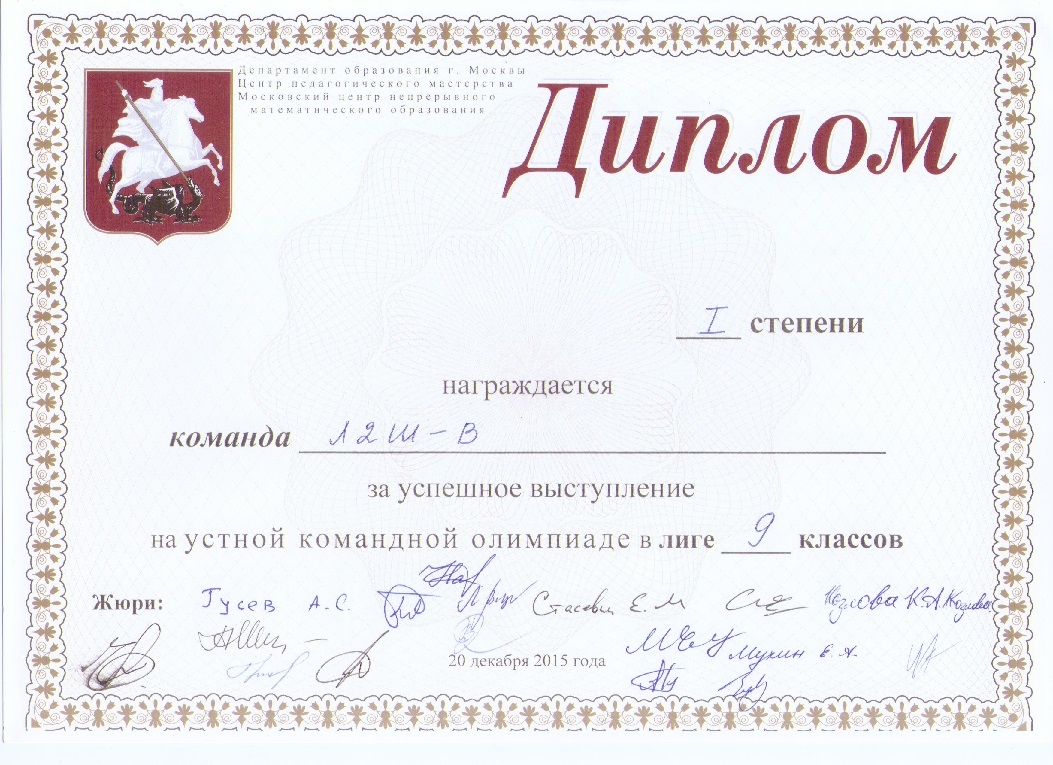 Департамент образования г. Москвы
Центр педагогического мастерства
Московский центр непрерывного
математического образования
Диплом
I степени
награждается
команда Л2Ш-В
за успешное выступление
на устной командной олимпиаде в лиге 9 классов
Жюри: Гусев А.С. Е.М Козлова К.А.
Мукин Е.А.
20 декабря 2015 года